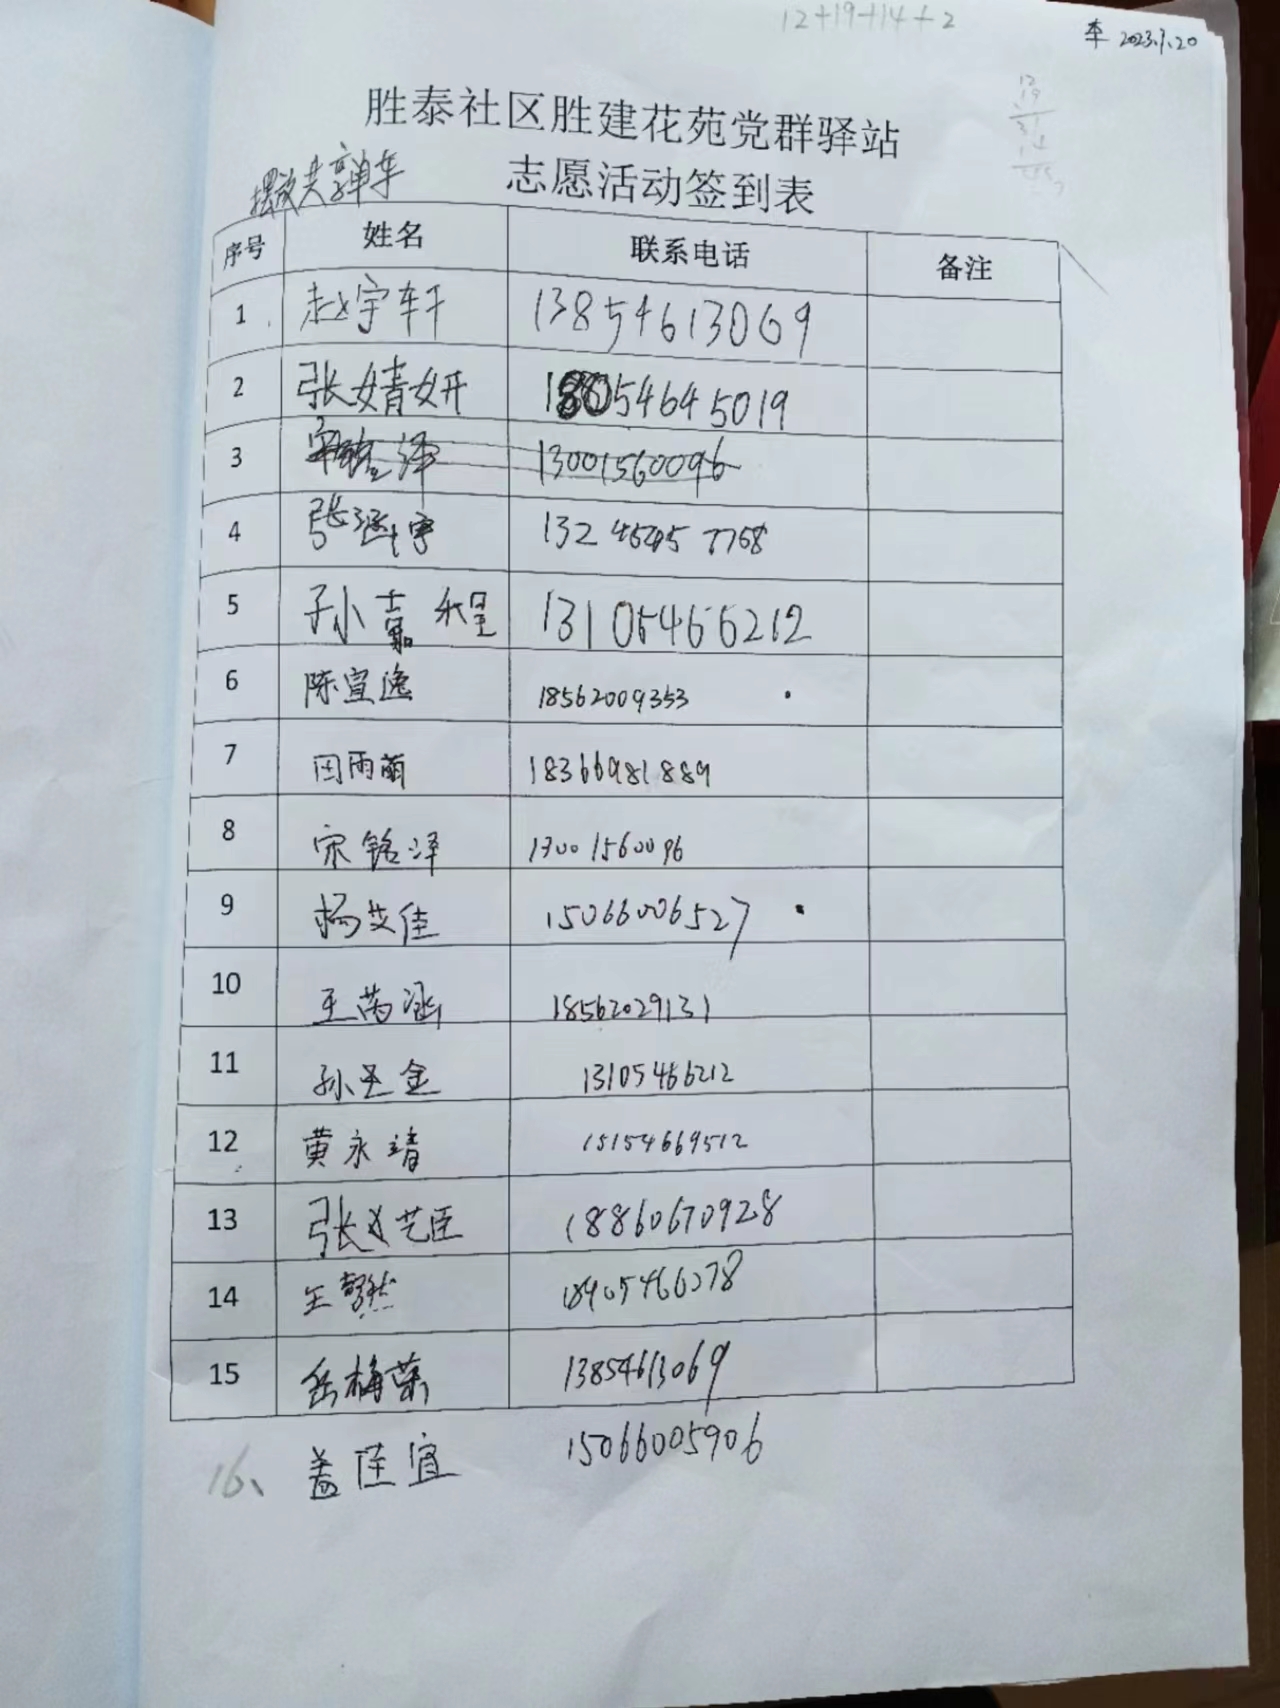 12+19+14+2
2023.7.20
胜泰社区胜建花苑党群驿站
摆放共享单车 志愿活动签到表
序号 姓名 联系电话 备注
1 赵宇轩 13854613069
2 张婧妍 18054645019
3 13001560096
4 张涵宇
5 孙嘉程 13105466212
6 陈宣逸 18562009353
7 田雨萌 18366981889
8 宋铭泽 13001560096
9 杨艾佳 15066006527
10 王芮涵 18562029131
11 孙圣金 13105466212
12 黄永靖 15154669512
13 张艺臣 18860670928
14 王 18905466278
15 岳梅荣 13854613069
16、 盖佳宜 15066005906